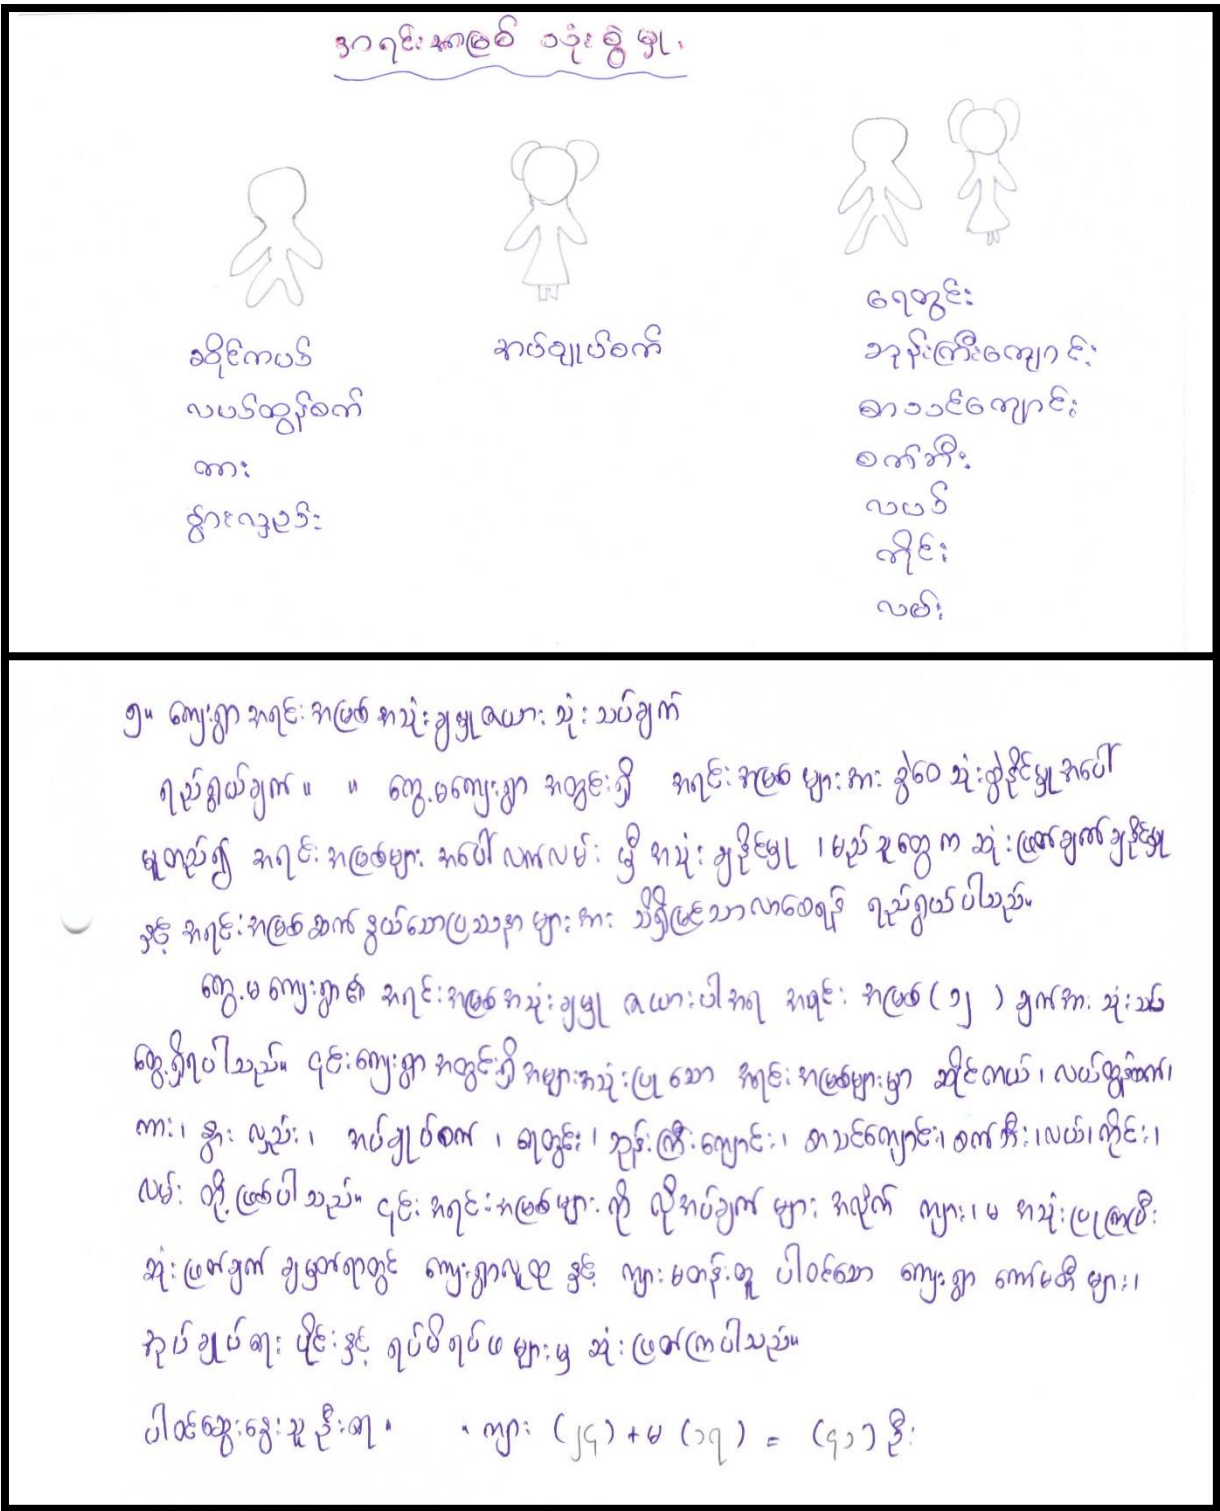 အရင်းအမြစ် သုံးစွဲမှု
ဆိုင်ကယ်
လယ်ထွန်စက်
ကား
နွားလှည်း
အပ်ချုပ်စက်
ရေတွင်း
ဘုန်းကြီးကျောင်း
စာသင်ကျောင်း
စက်ဘီး
လယ်
ကိုင်း
လမ်း
၅။ ကျေးရွာ အရင်းအမြစ် အသုံးချမှု ဇယား သုံးသပ်ချက်
ရည်ရွယ်ချက်။ ။ တွေ့မကျေးရွာ အတွင်းရှိ အရင်းအမြစ် များအား ခွဲဝေ သုံးစွဲနိုင်မှု အပေါ်
မူတည်၍ အရင်းအမြစ်များ အပေါ် လက်လမ်းမှီ အသုံးချနိုင်မှု ၊ မည်သူတွေက ဆုံးဖြတ်ချက်ချနိုင်မှု
နှင့် အရင်းအမြစ်ဆက်နွယ်သောပြဿနာများအား သိရှိမြင်သာလာစေရန် ရည်ရွယ်ပါသည်။
တွေ့မကျေးရွာ၏ အရင်းအမြစ်အသုံးချမှု ဇယားပါအရ အရင်းအမြစ် (၁၂) ချက်အား သုံးသပ်
တွေ့ရှိရပါသည်။ ၎င်းကျေးရွာအတွင်းရှိ အများအသုံးပြုသော အရင်းအမြစ်များမှာ ဆိုင်ကယ်၊ လယ်ထွန်စက်၊
ကား၊ နွားလှည်း၊ အပ်ချုပ်စက်၊ ရေတွင်း၊ ဘုန်းကြီးကျောင်း၊ စာသင်ကျောင်း၊ စက်ဘီး၊ လယ်၊ ကိုင်း၊
လမ်း တို့ဖြစ်ပါသည်။ ၎င်းအရင်းအမြစ်များကို လိုအပ်ချက်များ အလိုက် ကျား၊ မ အသုံးပြုကြပြီး
ဆုံးဖြတ်ချက် ချမှတ်ရာတွင် ကျေးရွာလူထု နှင့် ကျားမတန်းတူ ပါဝင်သော ကျေးရွာ ကော်မတီများ၊
အုပ်ချုပ်ရေးပိုင်းနှင့် ရပ်မိရပ်ဖများမှ ဆုံးဖြတ်ကြပါသည်။
ပါဝင်ဆွေးနွေးသူဦးရေ။ ။ ကျား (၂၄) + မ (၁၇) = (၄၁) ဦး